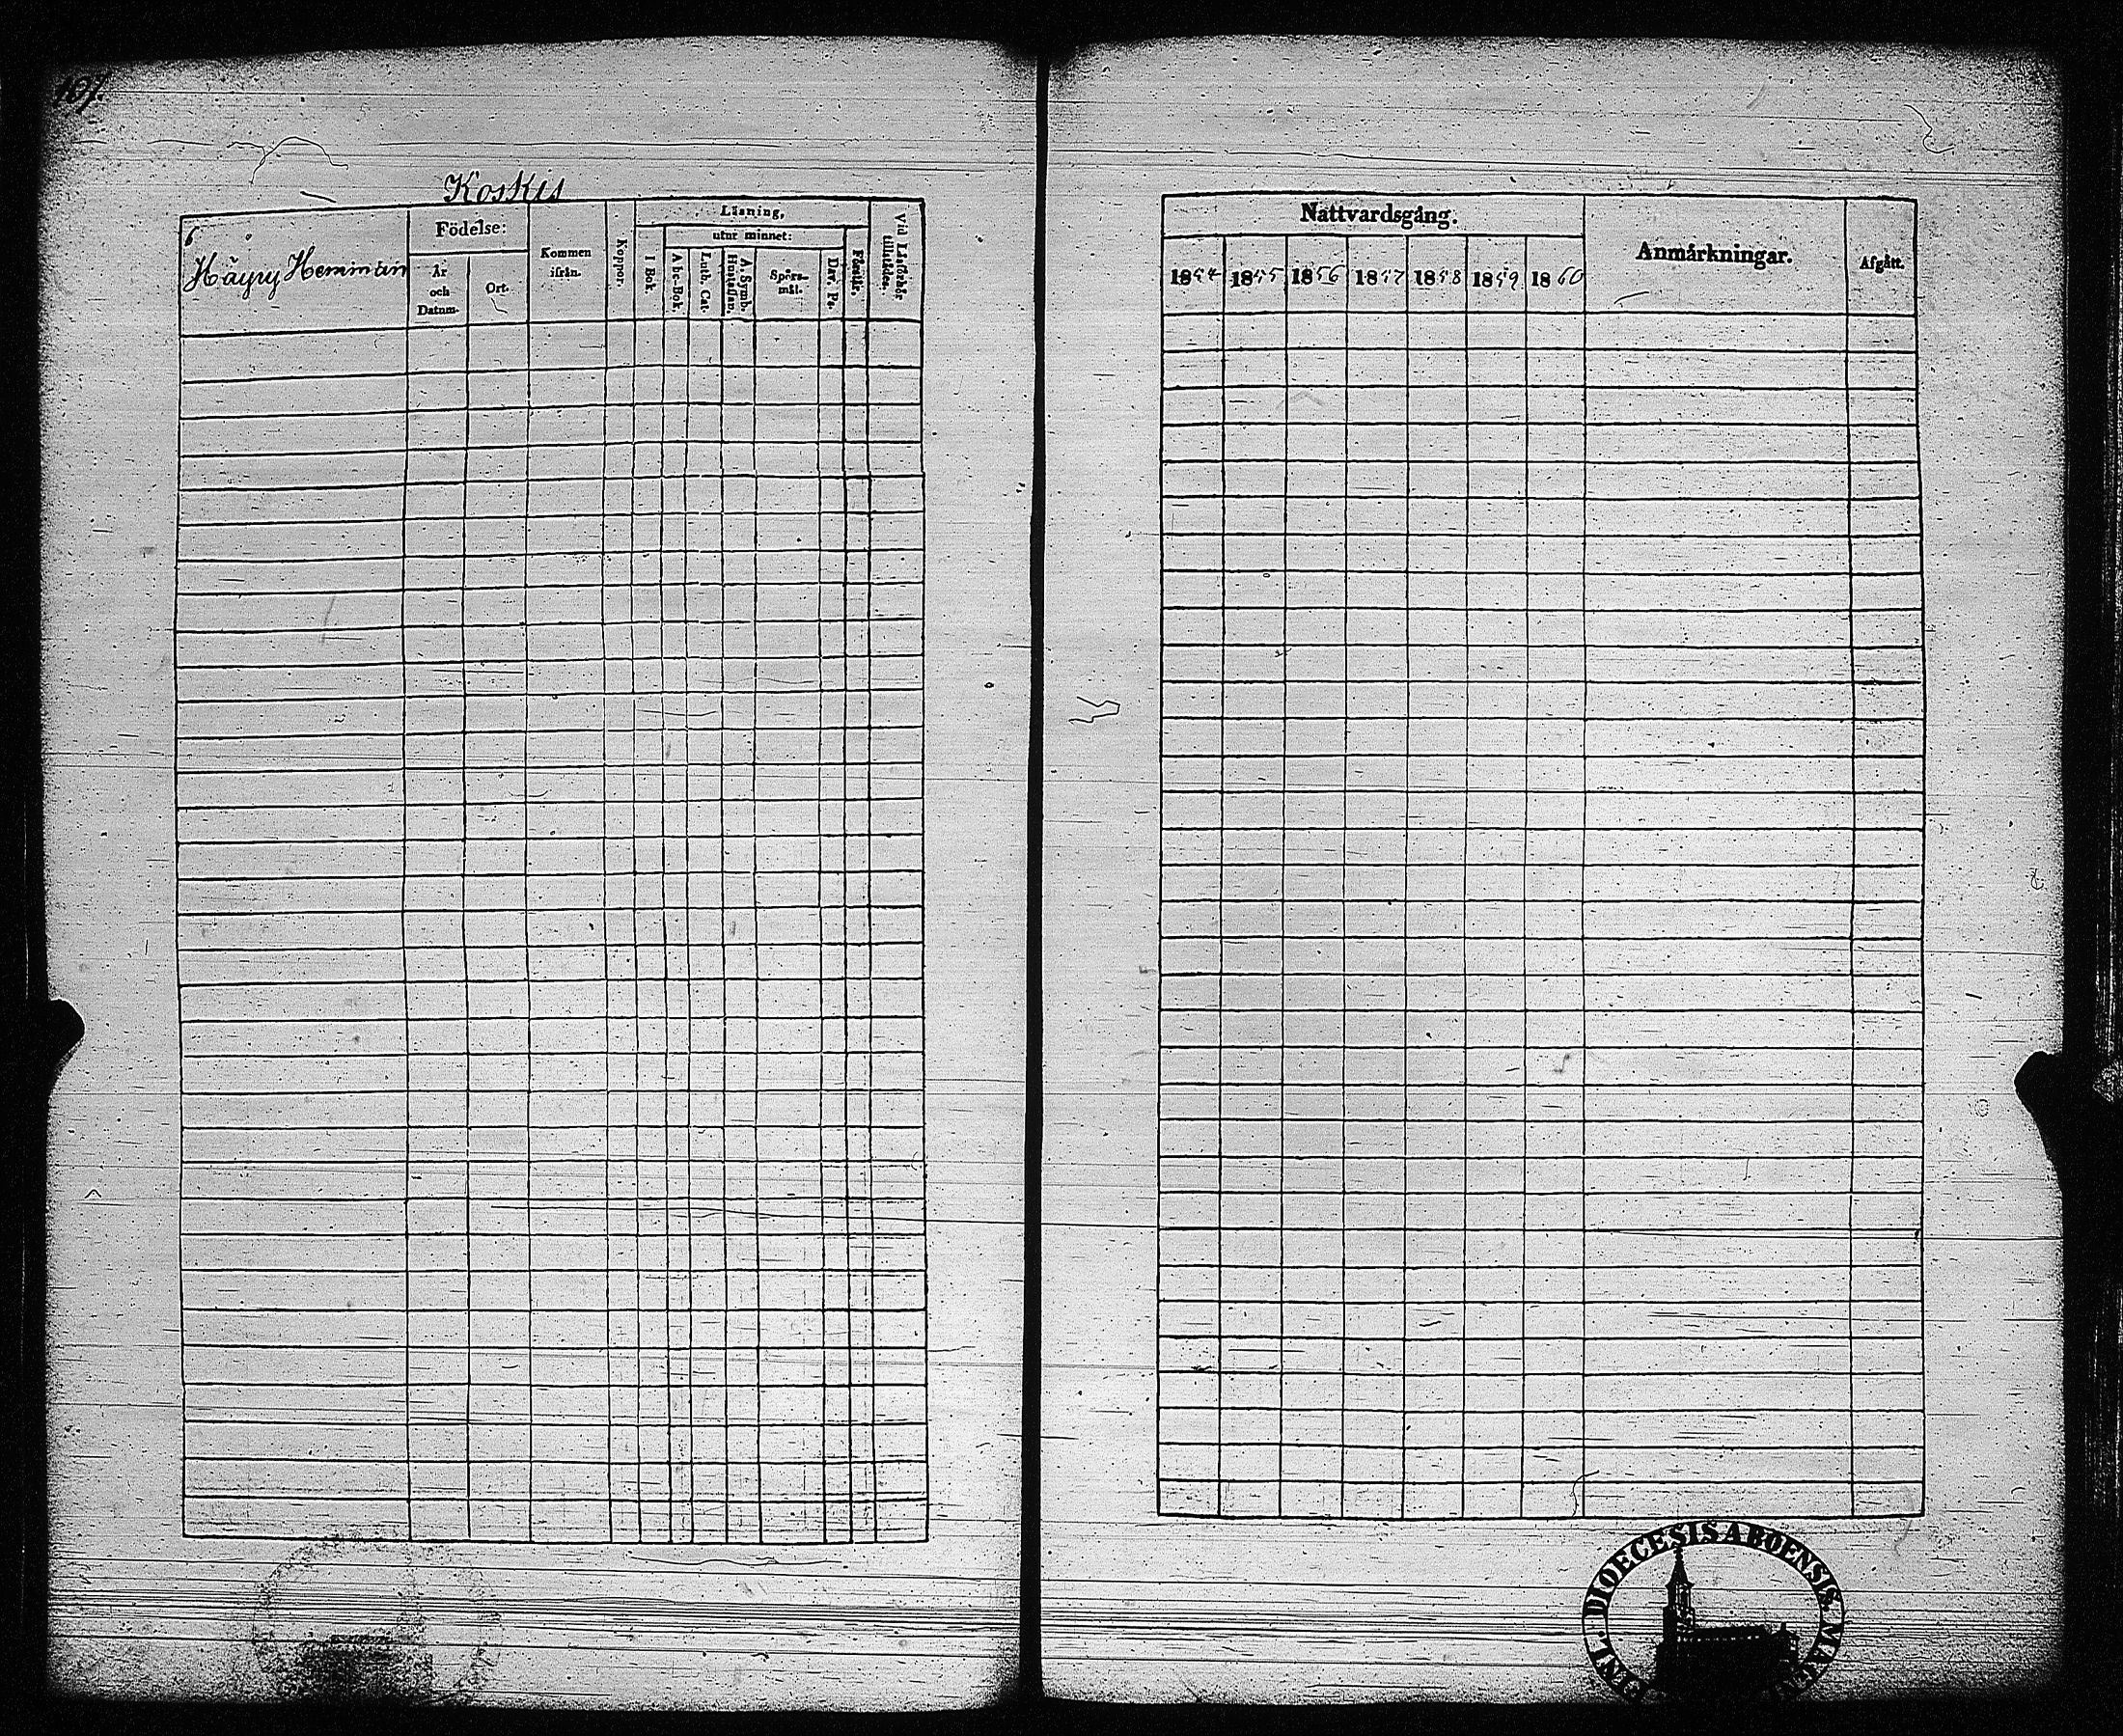 107.
Koskis
6
Häyry Hemman
Födelse:
År
och
Datum.
Ort.
Kommen
ifrån.
Koppor.
Läsning,
I Bok.
utur minnet:
Abc-Bok
Luth. Cat.
Hustaflan.
A. Symb.
Spörs-
mål.
Dav. Ps.
Förstår.
Vid Läsförhör
tillstädes.
Nattvardsgång.
1854
1855
1856
1857
1858
1859
1860
Anmärkningar.
Afgått.
DIOECESIS ABOENSIS. MA